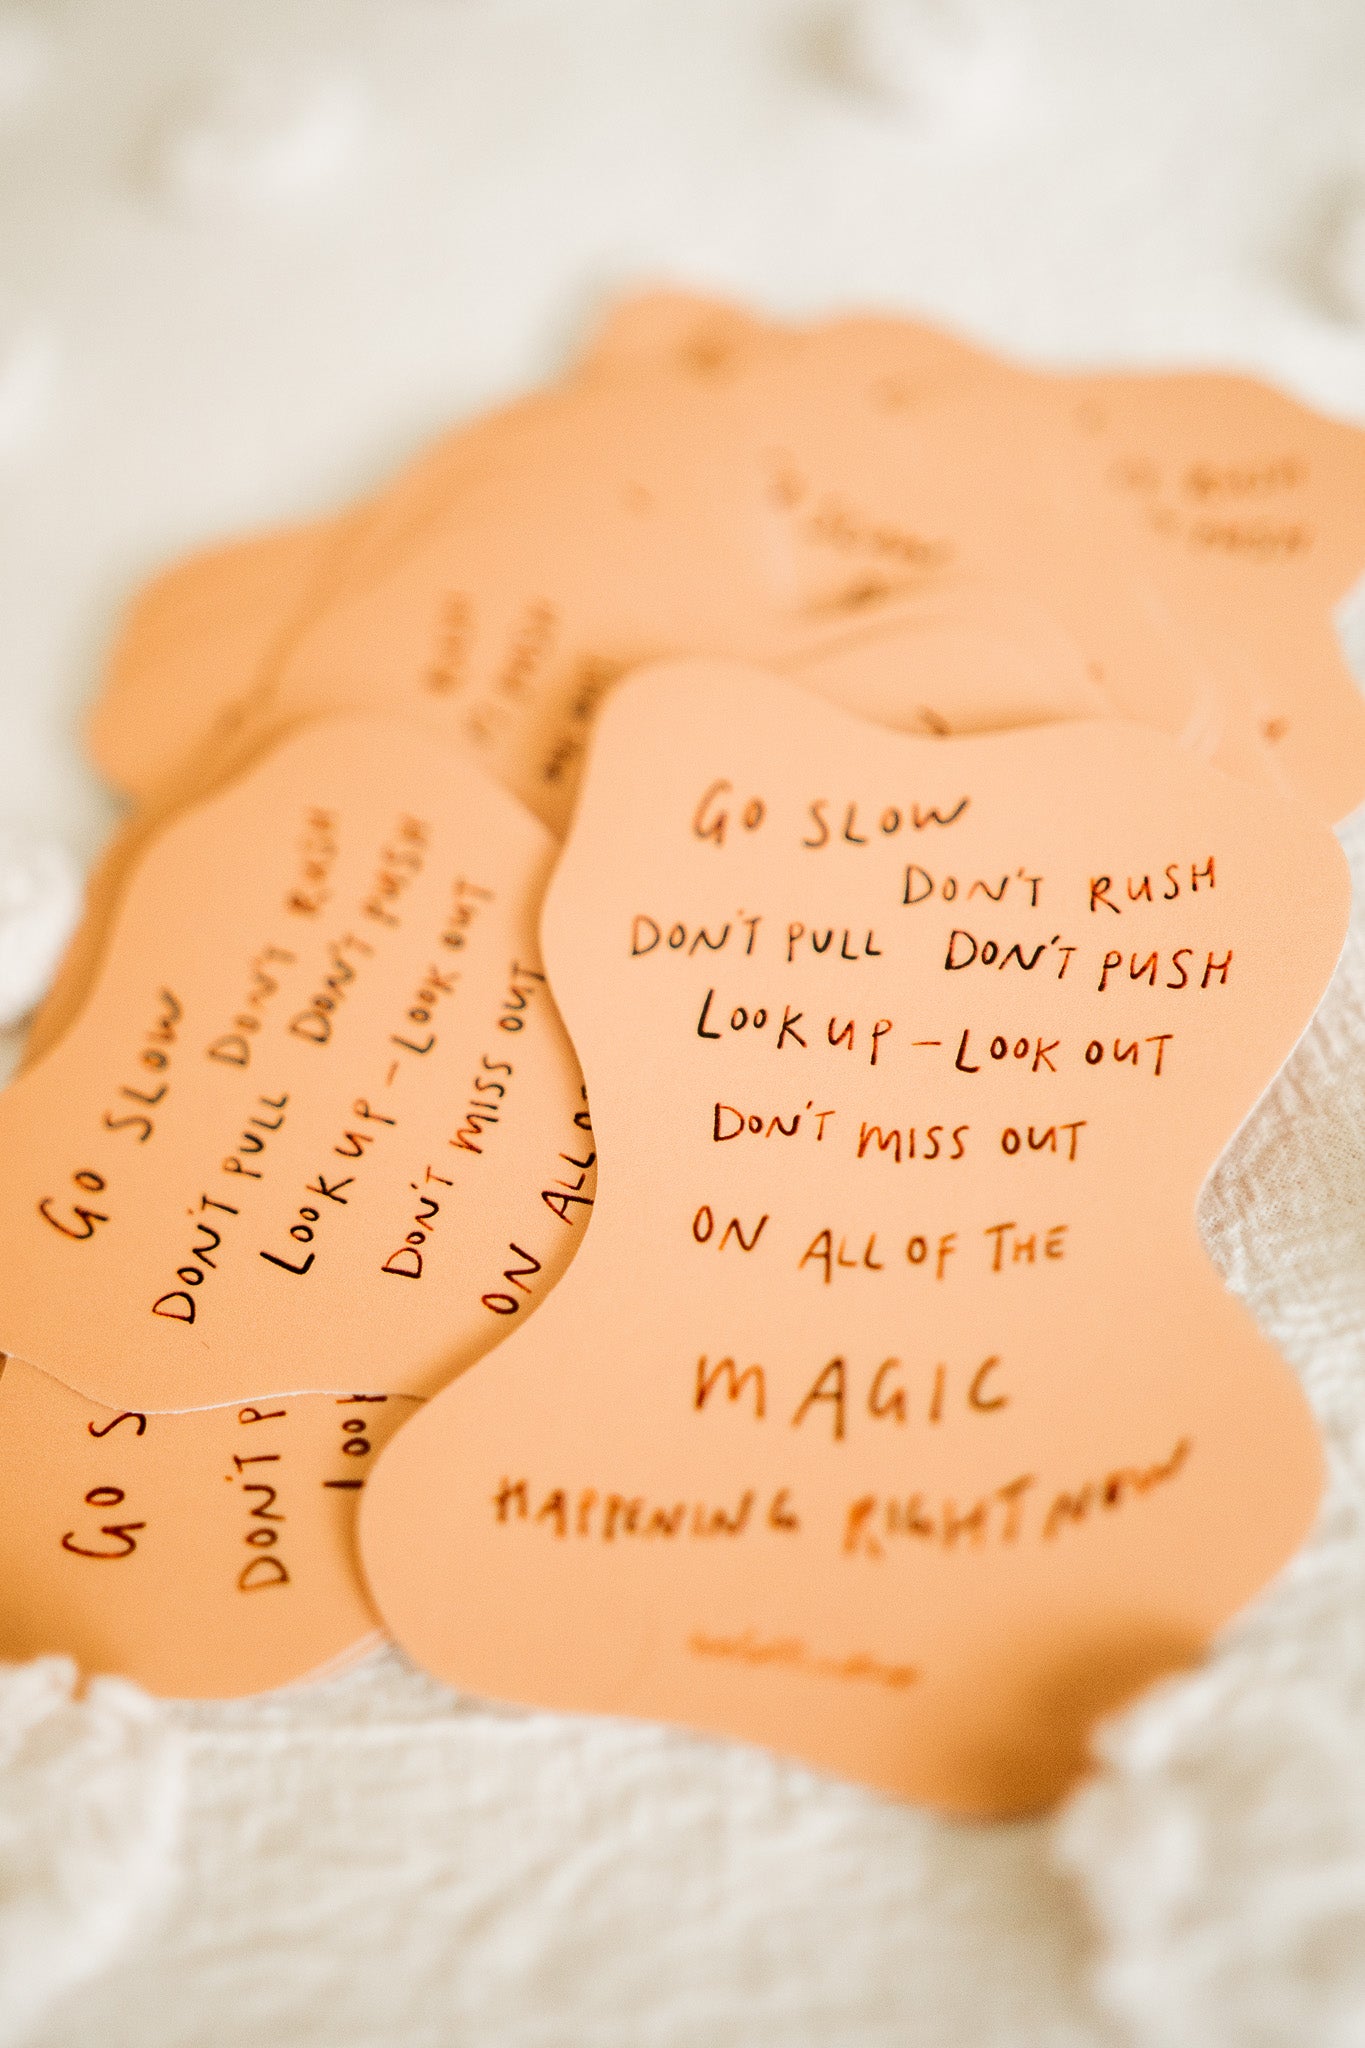 GO SLOW
DON'T RUSH
DON'T PULL DON'T PUSH
LOOK UP - LOOK OUT
DON'T MISS OUT
ON ALL OF THE
MAGIC
HAPPENING RIGHT NOW
GO SLOW
DON'T RUSH
DON'T PULL DON'T PUSH
LOOK UP - LOOK OUT
DON'T MISS OUT
ON ALL O
GO S
DON'T P
LOOK
RUSH
PUSH